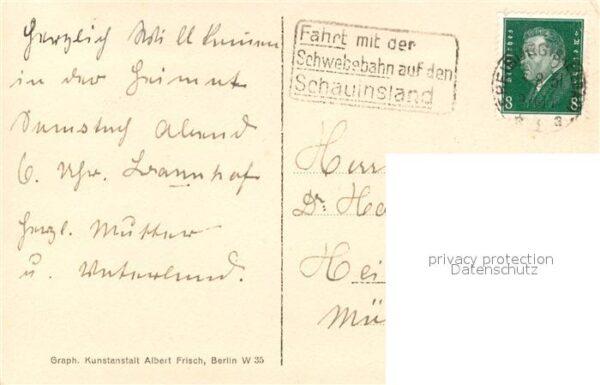 Herzlich Willkommen
in der Heimat
Samstag Abend
6 Uhr. Bannhof
Herzl. Mutter
u. Vaterland.
Graph. Kunstanstalt Albert Frisch, Berlin W 35
Fahrt mit der
Schwebebahn auf den
Schauinsland
Deutsches Reich
8 8
Herr
Dr. Ha
Hei
Mü
privacy protection
Datenschutz